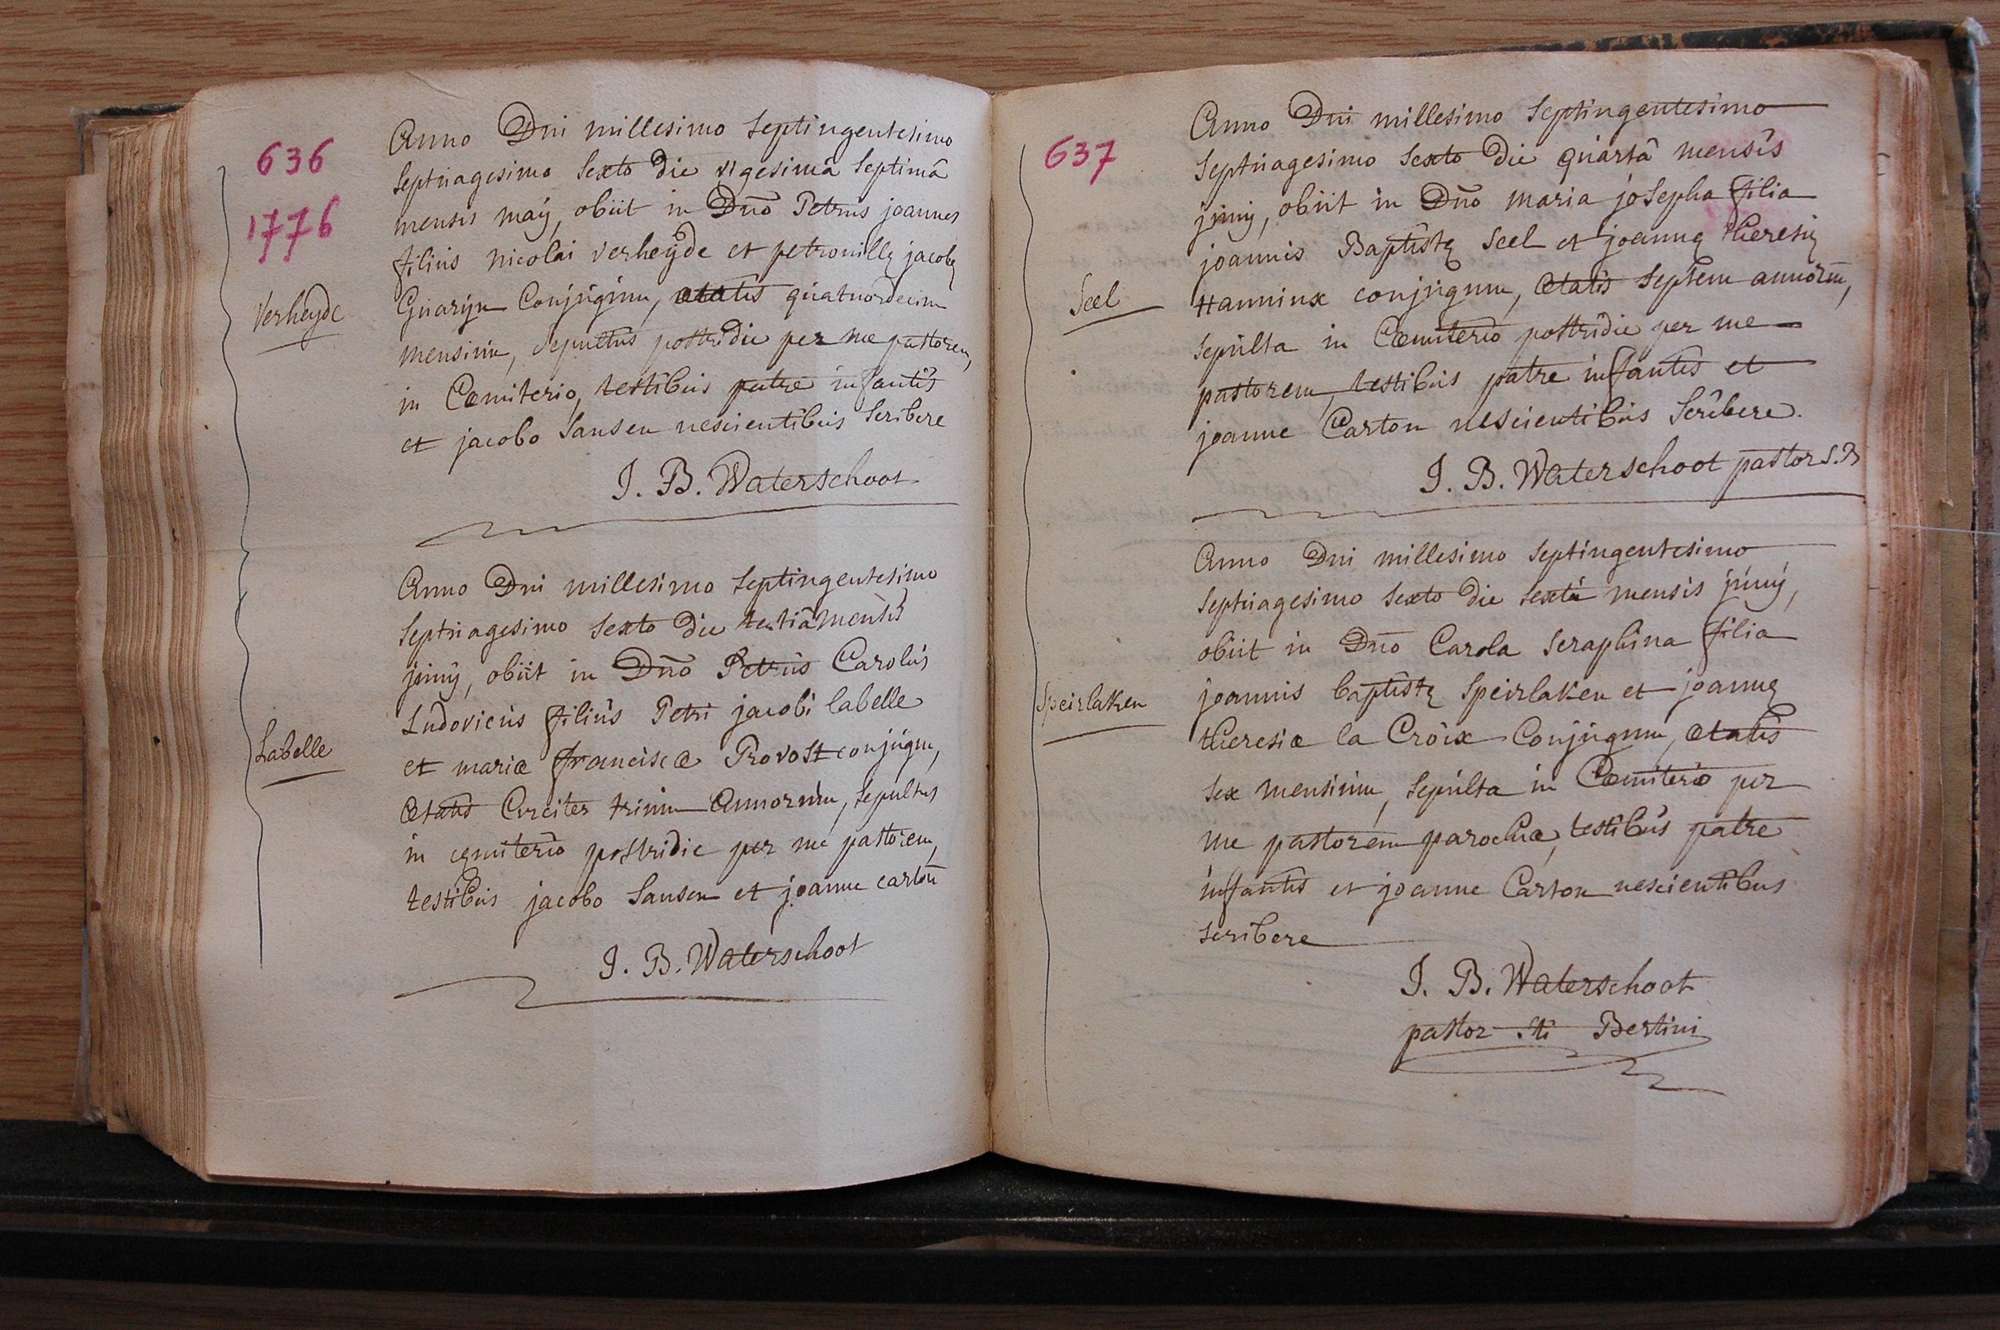 636
1776
Anno Dni millesimo septingentesimo
septuagesimo sexto die vigesimâ septimâ
mensis maÿ, obiit in Dño Petrus joannes
filius nicolai verheÿde et petronillę jacobę
conjúgúm, ætatis quatuordecim
Verheyde
mensiúm, sepultus postridie per me pastorem,
in Cœmiterio, testibús patre infantis
et jacobo Sansen nescientibús scribere
J. B. Waterschoot
Anno Dni millesimo septingentesimo
septúagesimo sexto die tertiâ mensis
júnÿ, obiit in Dño Petrús Carolús
Ludovicús filiús Petri jacobi labelle
Labelle
et mariæ franciscæ Provost conjúgúm,
ætatis Circiter triúm Annorúm, sepultus
in cęmiterio postridie per me pastorem,
testibús jacobo Sansen et joanne carton
J. B. Waterschoot
637
Anno Dni millesimo septingentesimo
septúagesimo sexto die quartâ mensis
júnÿ, obiit in Dño maria josepha filia
joannis Baptistę Seel et joannę theresię
Seel
Hanninx conjúgúm, ætatis septem annorúm,
sepúlta in Cœmiterio postridie per me
pastorem, testibús patre infantis et
joanne Carton nescientibús scribere.
J. B. Waterschoot pastor S. B
Anno Dni millesimo septingentesimo
septúagesimo sexto die sextâ mensis júnÿ,
obiit in Dño Carola Seraphina filia
Speirlaken
joannis baptistę Speirlaken et joannę
theresiæ la Croix Conjúgúm, ætatis
sex mensiúm, sepúlta in Cœmiterio per
me pastorem parochiæ, testibús patre
infantis et joanne Carton nescientibus
scribere
J. B. Waterschoot
pastor Sti Bertini